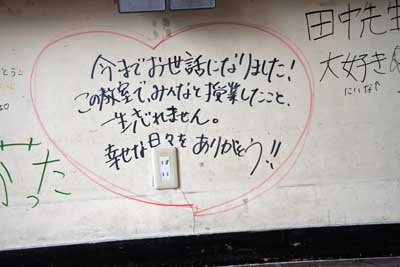 今までお世話になりました!
この教室で、みんなと授業したこと、
一生忘れません。
幸せな日々をありがとう!!
田中先生
大好き
にいな
かった
とう